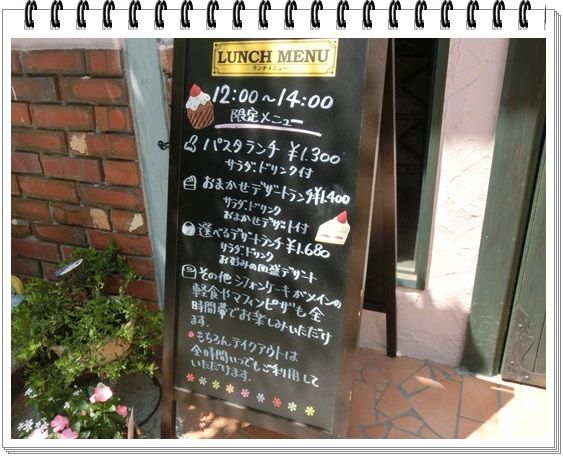 LUNCH MENU
ランチメニュー
12:00〜14:00
限定メニュー
パスタランチ ¥1.300
サラダ.ドリンク付
おまかせデザートランチ¥1.400
サラダ.ドリンク
おまかせデザート付
選べるデザートランチ ¥1.680
サラダ.ドリンク
お好みの皿盛デザート
その他 シフォンケーキがメインの
軽食やマフィンピザも全
時間帯でお楽しみいただけ
ます.
もちろん テイクアウトは
全時間いつでもご利用して
いただけます.